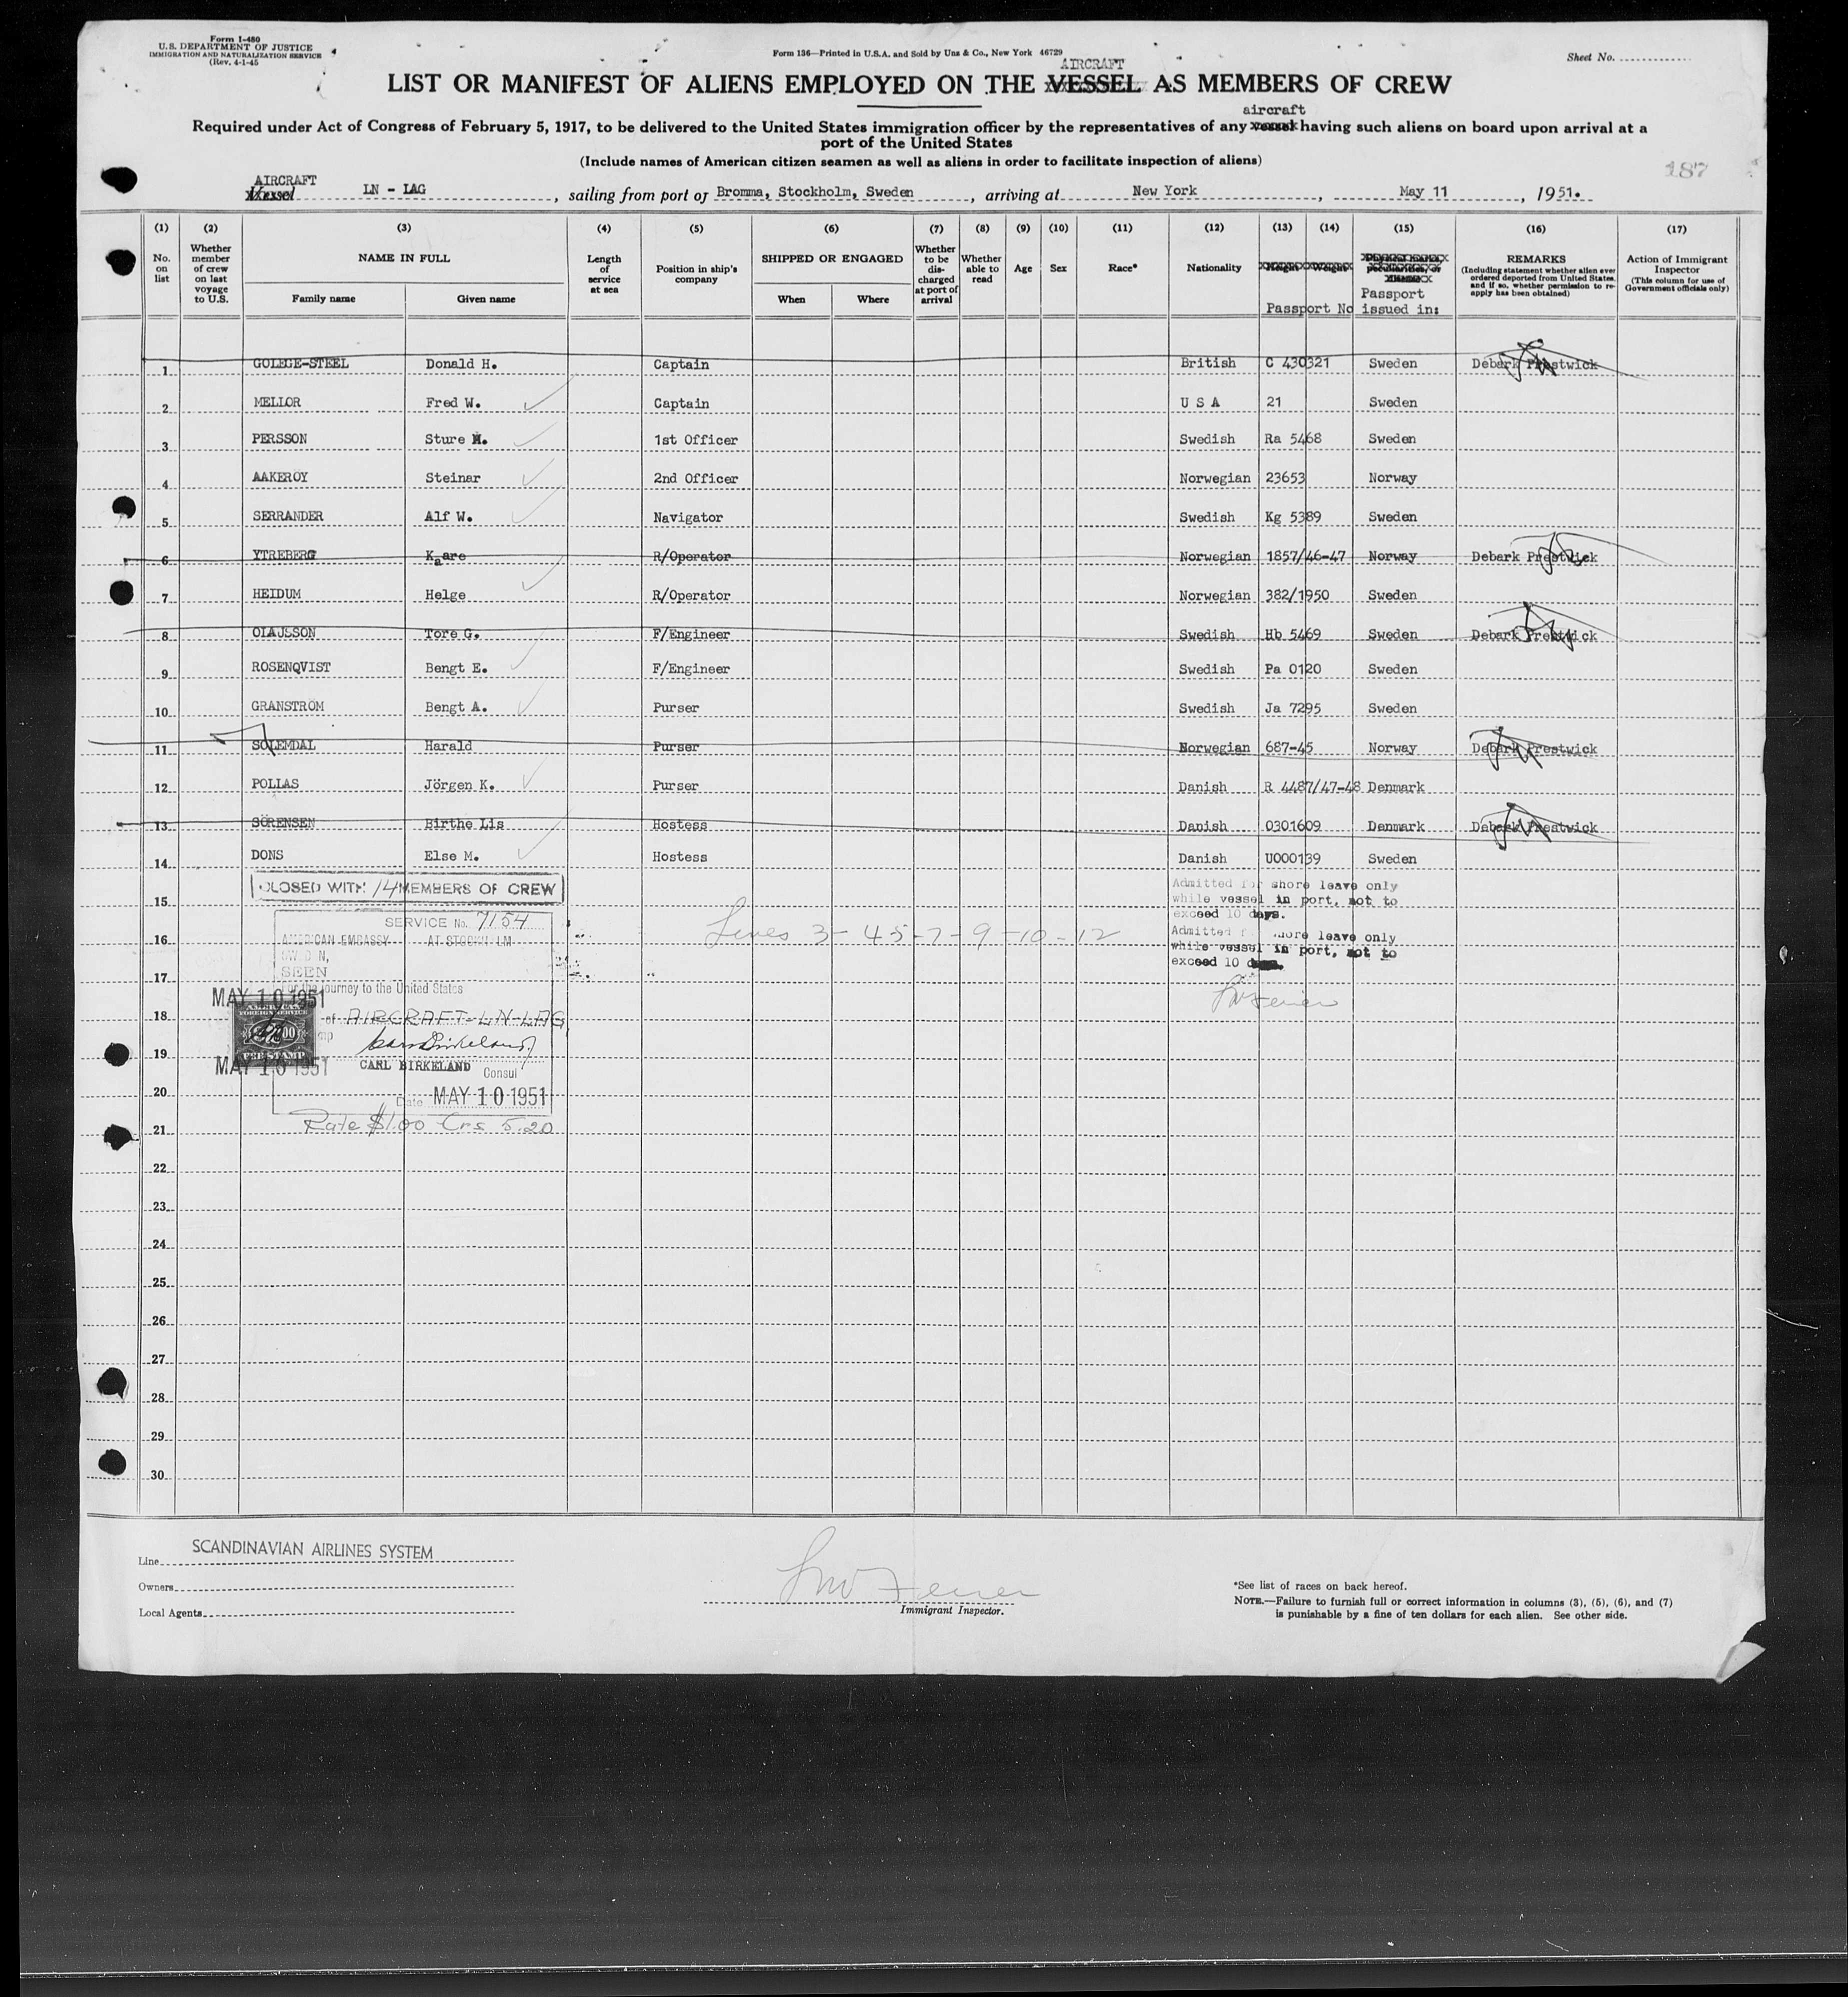 Form I-480
U.S. DEPARTMENT OF JUSTICE
IMMIGRATION AND NATURALIZATION SERVICE
(Rev. 4-1-45
Form 136—Printed in U.S.A. and Sold by Unz & Co., New York 46729
Sheet No.
AIRCRAFT
LIST OR MANIFEST OF ALIENS EMPLOYED ON THE VESSEL AS MEMBERS OF CREW
aircraft
Required under Act of Congress of February 5, 1917, to be delivered to the United States immigration officer by the representatives of any vessel having such aliens on board upon arrival at a
port of the United States
(Include names of American citizen seamen as well as aliens in order to facilitate inspection of aliens)
187
AIRCRAFT
Vessel LN - LAG, sailing from port of Bromma, Stockholm, Sweden, arriving at New York, May 11, 1951.
(1) (2) (3) (4) (5) (6) (7) (8) (9) (10) (11) (12) (13) (14) (15) (16) (17)
No. on list
Whether member of crew on last voyage to U.S.
NAME IN FULL
Family name Given name
Length of service at sea
Position in ship's company
SHIPPED OR ENGAGED
When Where
Whether to be discharged at port of arrival
Whether able to read
Age
Sex
Race*
Nationality
Height Weight
Passport No
peculiarities, or
Passport issued in:
REMARKS
(Including statement whether alien ever ordered deported from United States, and if so, whether permission to re-apply has been obtained)
Action of Immigrant Inspector
(This column for use of Government officials only)
1 GOLEGE-STEEL Donald H. Captain British C 430321 Sweden Debark Prestwick
2 MELLOR Fred W. Captain U S A 21 Sweden
3 PERSSON Sture H. 1st Officer Swedish Ra 5468 Sweden
4 AAKERÖY Steinar 2nd Officer Norwegian 23653 Norway
5 SERRANDER Alf W. Navigator Swedish Kg 5389 Sweden
6 YTREBERG Kaare R/Operator Norwegian 1857/46-47 Norway Debark Prestwick
7 HEIDUM Helge R/Operator Norwegian 382/1950 Sweden
8 OLAUSSON Tore G. F/Engineer Swedish Hb 5469 Sweden Debark Prestwick
9 ROSENQVIST Bengt E. F/Engineer Swedish Pa 0120 Sweden
10 GRANSTRÖM Bengt A. Purser Swedish Ja 7295 Sweden
11 SOLEMDAL Harald Purser Norwegian 687-45 Norway Debark Prestwick
12 POLLAS Jörgen K. Purser Danish R 4487/47-48 Denmark
13 SÖRENSEN Birthe Lis Hostess Danish 0301609 Denmark Debark Prestwick
14 DONS Else M. Hostess Danish U000139 Sweden
CLOSED WITH 14 MEMBERS OF CREW
Admitted for shore leave only
while vessel in port, not to
exceed 10 days.
15
SERVICE No. 7154
Lines 3-4-5-7-9-10-12
Admitted f shore leave only
while vessel in port, not to
exceed 10 days.
16
AMERICAN EMBASSY AT STOCKHOLM
SWEDEN,
SEEN
17
For the journey to the United States
MAY 10 1951
AMERICAN
FOREIGN SERVICE
FEE STAMP
18
of AIRCRAFT-LN-LAG
19
MAY 10 1951
CARL BIRKELAND Consul
20
Date MAY 10 1951
21
Rate $1.00 Crs 5.20
22
23
24
25
26
27
28
29
30
Line SCANDINAVIAN AIRLINES SYSTEM
Owners
Local Agents
Immigrant Inspector.
*See list of races on back hereof.
NOTE.—Failure to furnish full or correct information in columns (3), (5), (6), and (7)
is punishable by a fine of ten dollars for each alien. See other side.